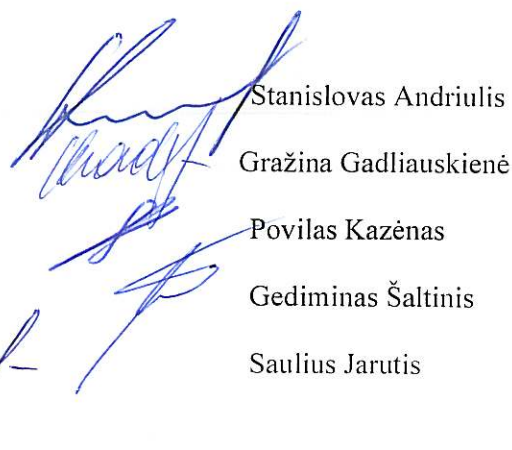 Stanislovas Andriulis
Gražina Gadliauskienė
Povilas Kazėnas
Gediminas Šaltinis
Saulius Jarutis